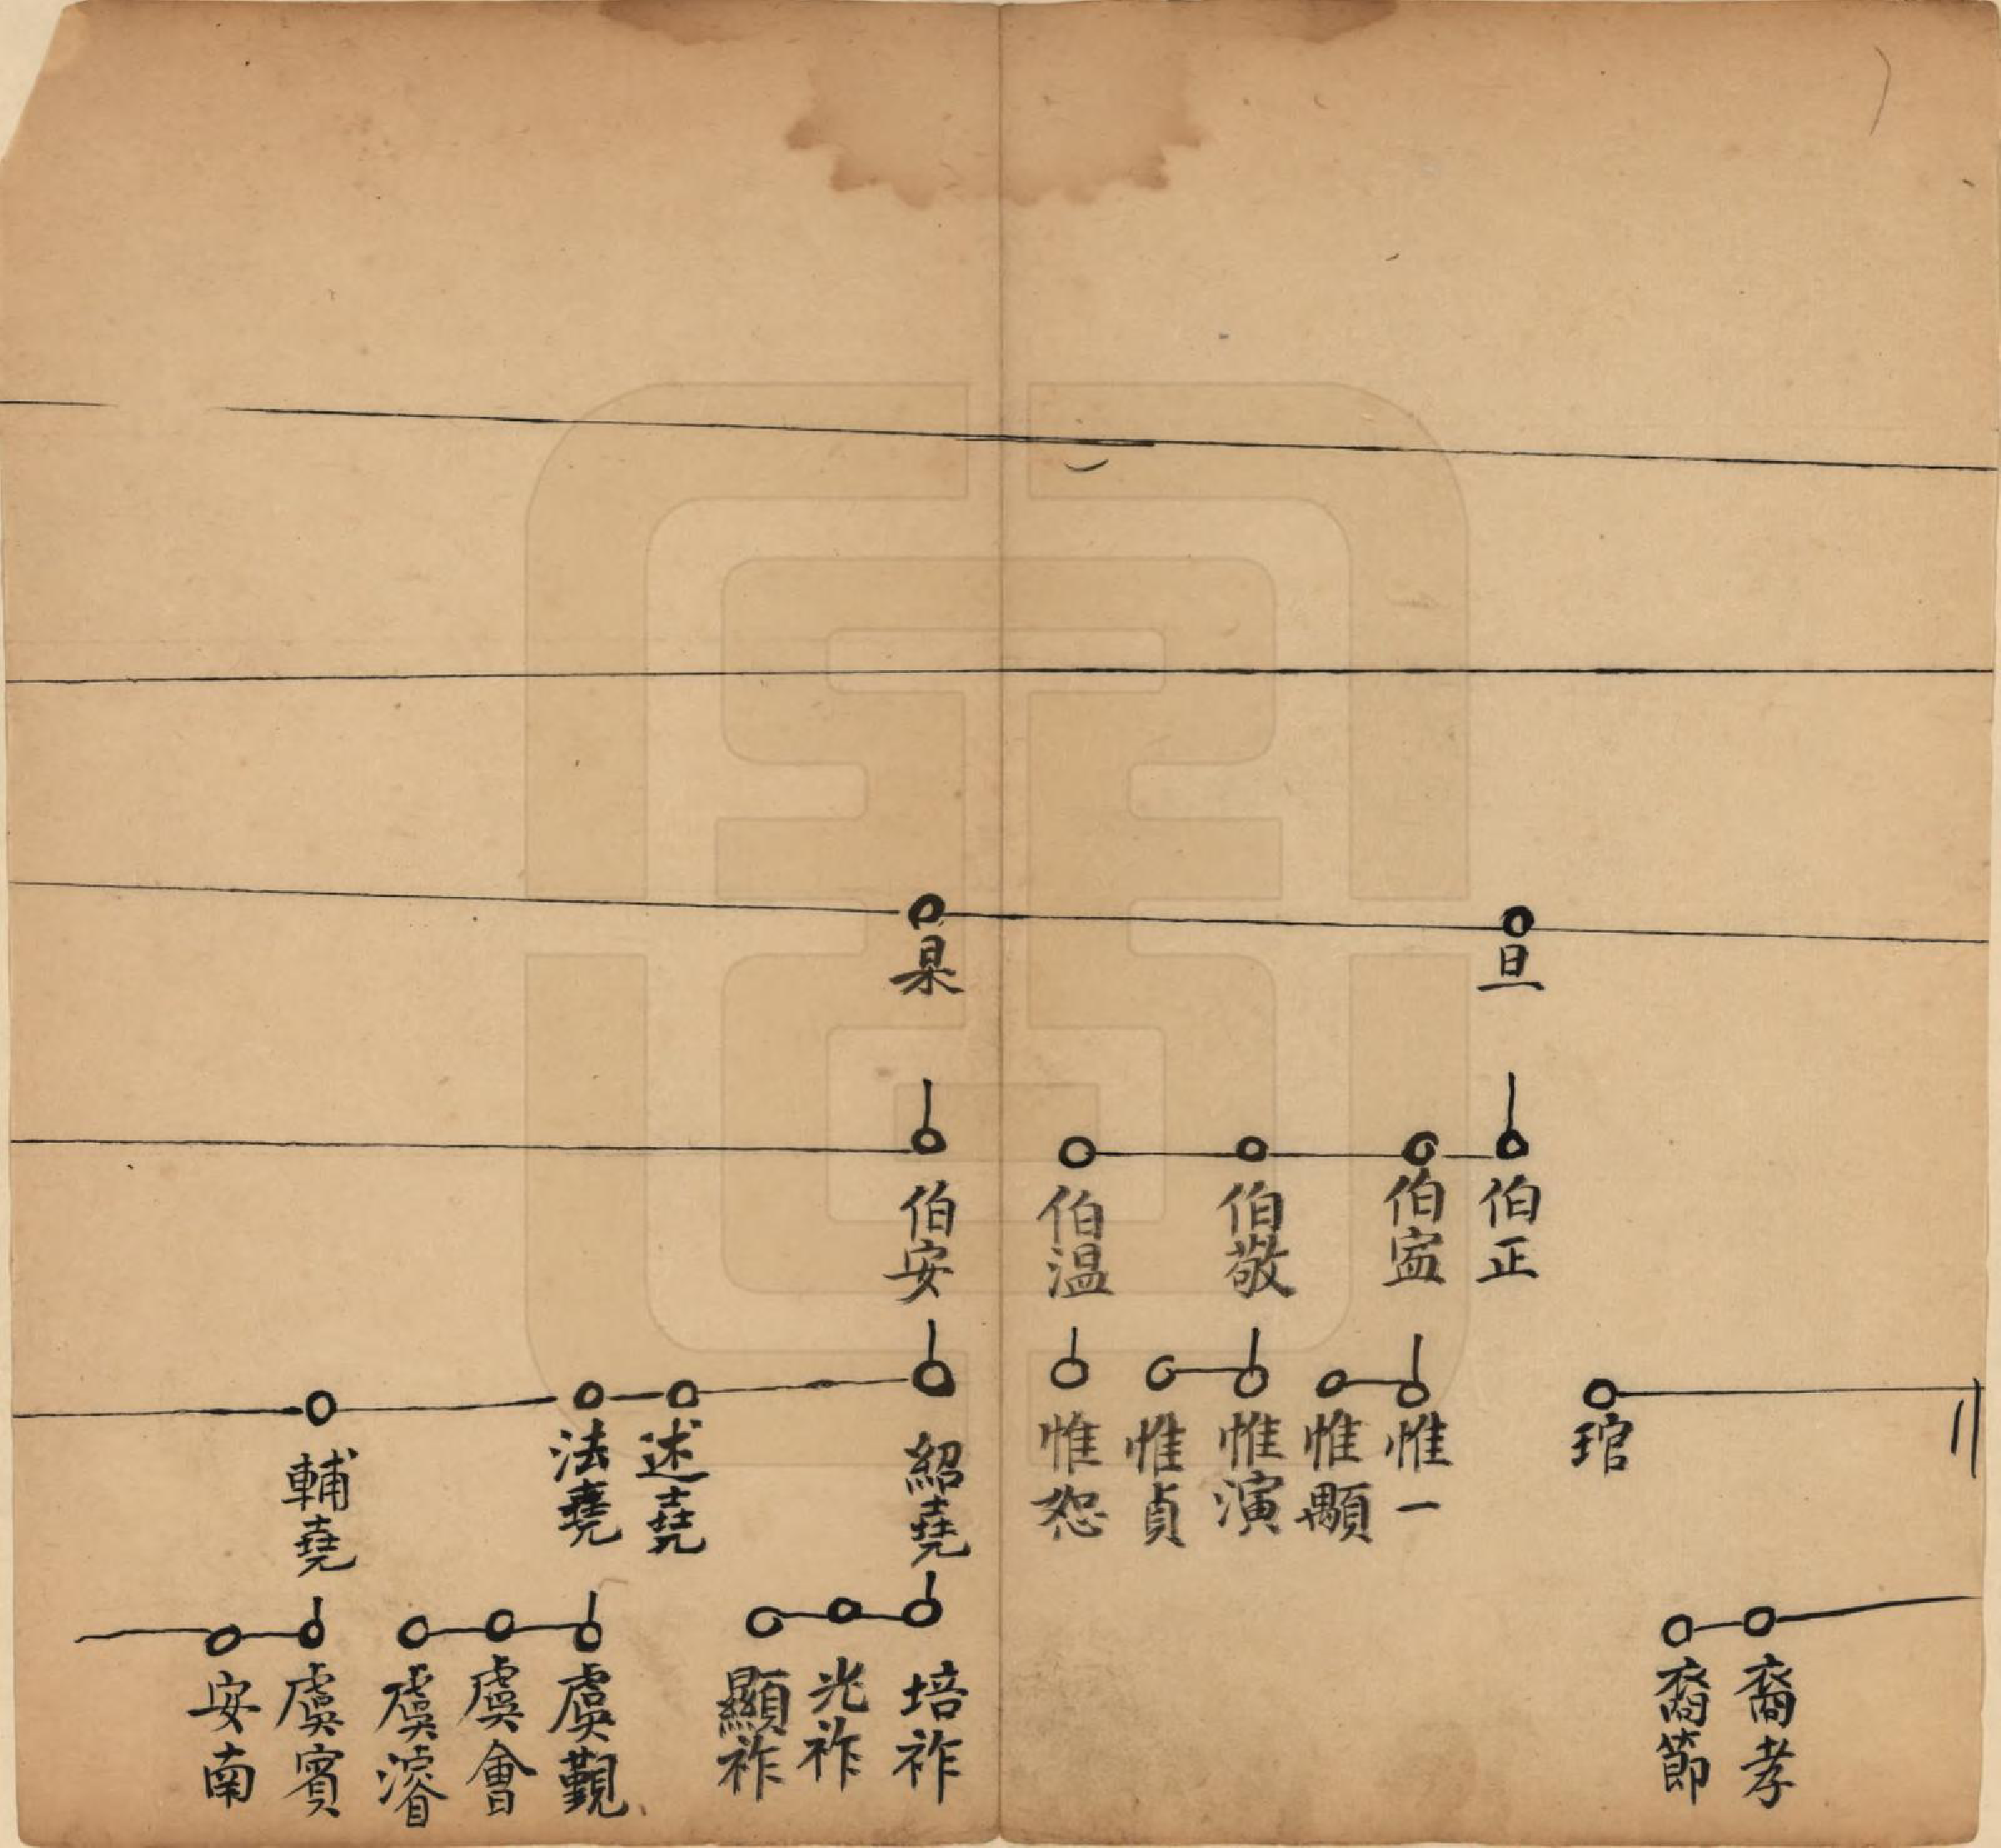 旦
杲
伯正
伯寍
伯敬
伯温
伯安
琯
惟一
惟顒
惟演
惟貞
惟恕
紹堯
述堯
法堯
輔堯
裔孝
裔節
培祚
光祚
顯祚
虞覲
虞會
虞濬
虞賓
安南